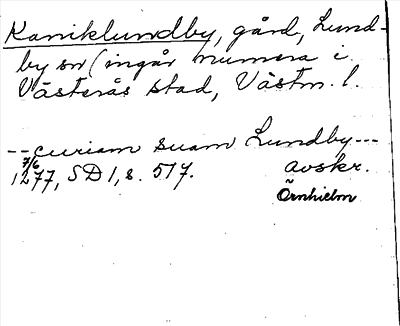 Kaniklundby, gård, Lund-
by sn (ingår numera i
Västerås stad, Västm. l.
-- curiam suam Lundby ---
7/6
1277, SD 1, s. 517. avskr.
Örnhielm